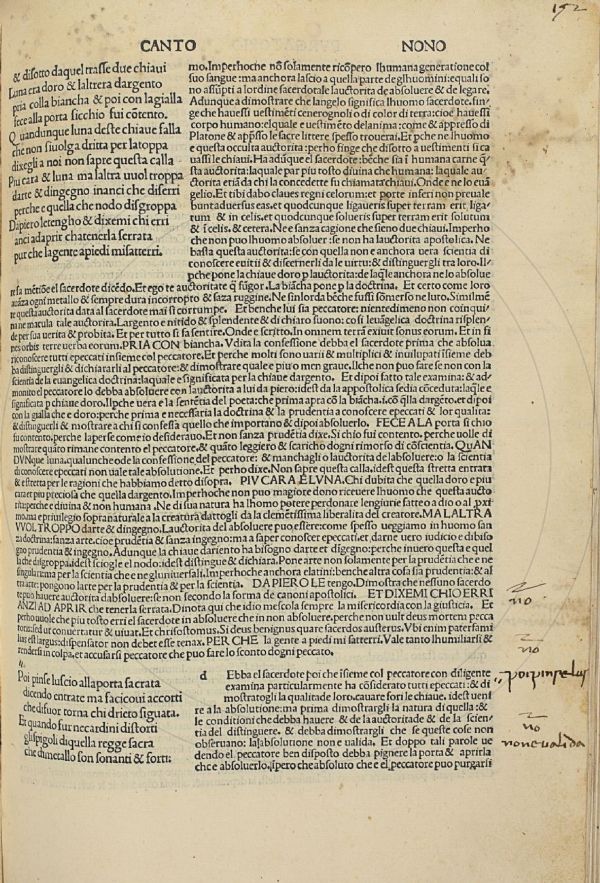 152
CANTO NONO
& disotto daquel trasse due chiaui
Luna era doro & laltrera dargento
pria colla biancha & poi con lagialla
fece alla porta sicchio fui cōtento.
Quandunque luna deste chiaue falla
che non siuolga dritta per latoppa
dixegli a noi non sapre questa calla
Piu cara & luna ma laltra uuol troppa
darte & dingegno inanci che diserri
perche e quella che nodo disgroppa
Dapiero letengho & dixemi chi erri
anci adaprir chatenerla serrata
pur che lagente apiedi misatterri.
mo. Imperhoche nō solamente ricōpero lhumana generatione col
suo sangue: ma anchora lascio a quella parte de glhuomini: equali so
no assūpti a lordine sacerdotale lauctorita de absoluere & de legare.
Adunque a dimostrare che langelo significa lhuomo sacerdote. fin
ge che hauessi uestimēti cenerognoli o di color di terra: cioe hauessi
corpo humano: elquale e uestimēto delanima: come & appresso da
Platone & apṗsso le sacre littere spesso trouerai. Et pche lhuomo
e questa occulta auctorita: perho finge che disotto a uestimenti si ca
uassi le chiaui. Ha adūque el sacerdote: bēche sia ī humana carne q̄
sta auctorita: laquale par piu tosto diuina che humana: laquale au
ctorita etiā da chi la concedette fu chiamata chiaui. Onde e ne lo euā
gelio. Et tibi dabo claues regni celorum: et porte inferi non preuale
bunt aduersus eas, et quodcunque ligaueris super terram erit ligatum
& in celis. et quodcunque solueris super terram erit solutum
& ī celis. & cetera. Ne e sanza cagione che sieno due chiaui. Imperho
che non puo lhuomo absoluer: se non ha lauctorita apostolica. Ne
basta questa auctorita: se con quella non e anchora uera scientia di
conoscere euitii & discernerli da le uirtu: & distinguergli tra loro. Il
pche pone la chiaue doro p lauctorita: de laq̄le anchora ne lo absolue
re fa mētiōe el sacerdote dicēdo. Et ego te auctoritate q̄ fūgor. La biācha pone p la doctrina. Et certo come loro
auāza ogni metallo & sempre dura incorropto & saza ruggine. Ne sinlorda bēche fussi sōmerso ne luto. Similmē
te questa auctorita data al sacerdote mai si corrumpe. Et benche lui sia peccatore: nientedimeno non coinqui
na ne macula tale auctorita. Largento e nitido & splendente & di chiaro suono: cosi leuāgelica doctrina risplen
de per sua uerita & probita. Et per tutto si fa sentire. Onde e scritto. In omnem terrā exiuit sonus eorum. Et in fi
nes orbis terre uerba eorum. PRIA CON biancha. Vdita la confessione debba el sacerdote prima che absolua
riconoscere tutti epeccati insieme col peccatore. Et perche molti sono uarii & multiplici & inuilupati īsieme deb
ba distinguergli & dichiararli al peccatore: & dimostrare quale e piu o men graue. Ilche non puo fare se non con la
scientia de la euangelica doctrina: laquale e significata per la chiaue dargento. Et dipoi fatto tale examina: & ad
monito el peccatore lo debba absoluere con lauctorita a lui da piero: idest da la appostolica sedia cōceduta: laq̄le e
significata p chiaue doro. Ilche uera e la senrētia del poeta: che prima apra cō la biācha. i. cō q̄lla dargēto. et dipoi
con la gialla che e doro: perche prima e necessaria la doctrina & la prudentia a conoscere epeccati & lor qualita:
& distinguerli & mostrare a chi si confessa quello che importano & dipoi absoluerlo. FECE A LA porta si chio
fui contento. Perche laperse come io desiderauo. Et non sanza prudētia dixe. Si chio fui contento. perche uolle di
mostrare quāto rimane contento el peccatore, & quāto leggiero & scaricho dogni rimorso di cōscientia. QUAN
DVNque luna. qualunche ode la confessione del peccatore: & manchagli o lauctorita de labsoluere: o la scientia
di conoscere epeccati non uale tale absolutione. Et perho dixe. Non sapre questa calla. idest questa stretta entrata
& e stretta per le ragioni che habbiamo detto disopra. PIV CARA E LVNA. Chi dubita che quella doro e piu
cara et piu preciosa che quella dargento. Imperhoche non puo magiore dono riceuere lhuomo che questa aucto
rita: perche e diuina & non humana. Ne di sua natura ha lhom potere perdonare lengiurie fatte o a dio o al pxi
mo. ma e priuilegio sopranaturale a la creatura datogli da la clemētissima liberalita del creatore. MA LALTRA
VVOL TROPPO darte & dingegno. Lauctorita del absoluere puo essere: come spesso ueggiamo in huomo san
za doctrina: sanza arte. cioe prudētia & sanza ingegno: ma a saper conoscer epeccati. et, darne uero iudicio e dibiso
gno prudentia & ingegno. Adunque la chiaue dariento ha bisogno darte et digegno: perche inuero questa e quel
la che disgroppa. idest scioglie el nodo: idest distingue & dichiara. Pone arte non solamente per la prudentia che e ne
singulari: ma per la scientia che e ne gluniuersali. Imperhoche anchora elatini: benche altra cosa sia prudentia: & al
tra arte: pongono larte per la prudentia & per la scientia. DA PIERO LE tengo. Dimostra che nessuno sacerdo
te puo hauere auctorita dabsoluere: se non secondo la forma de canoni appostolici. ET DIXEMI CHIO ERRI
ANZI AD APRIR che tenerla serrata. Dinota qui che idio mescola sempre la misericordia con la giusticia. Et
perho uuole che piu tosto erri el sacerdote in absoluere che in non absoluere. perche non uult deus mortem pecca
toris: sed ut conuertatur & uiuat. Et chrisostomus. Si deus benignus quare sacerdos austerus. Vbi enim paterfami
lias est largus: dispensator non debet esse tenax. PER CHE la gente a piedi mi satterri. Vale tanto lhumiliarsi &
rendersi in colpa, et accusarsi peccatore che puo fare lo sconto degni peccato.
Poi pinse luscio alla porta sacrata
dicendo entrate ma facicoui accorti
che difuor torna chi drieto siguata.
Et quando fur necardini distorti
glispigoli diquella regge sacra
che dimetallo son sonanti & forti:
d Ebba el sacerdote poi che īsieme col peccatore con diligente
examina particularmente ha cōsiderato tutti epeccati: & di
mostratogli la qualita de loro. cauare fori le chiaue. idest ueni
re a la absolutione: ma prima dimostrargli la natura di quella: &
le conditioni che debba hauere & de la auctoritade & de la scien
tia del distinguere. & debba dimostrargli che se queste cose non
obseruano: la absolutione non e ualida. Et doppo tali parole ue
dendo el peccatore ben disposto debba pignere la porta & aprirla
che e absoluerlo. ispero che absoluto che e el peccatore puo purgarsi
no
no
poi pinse lus
no
non e ualida